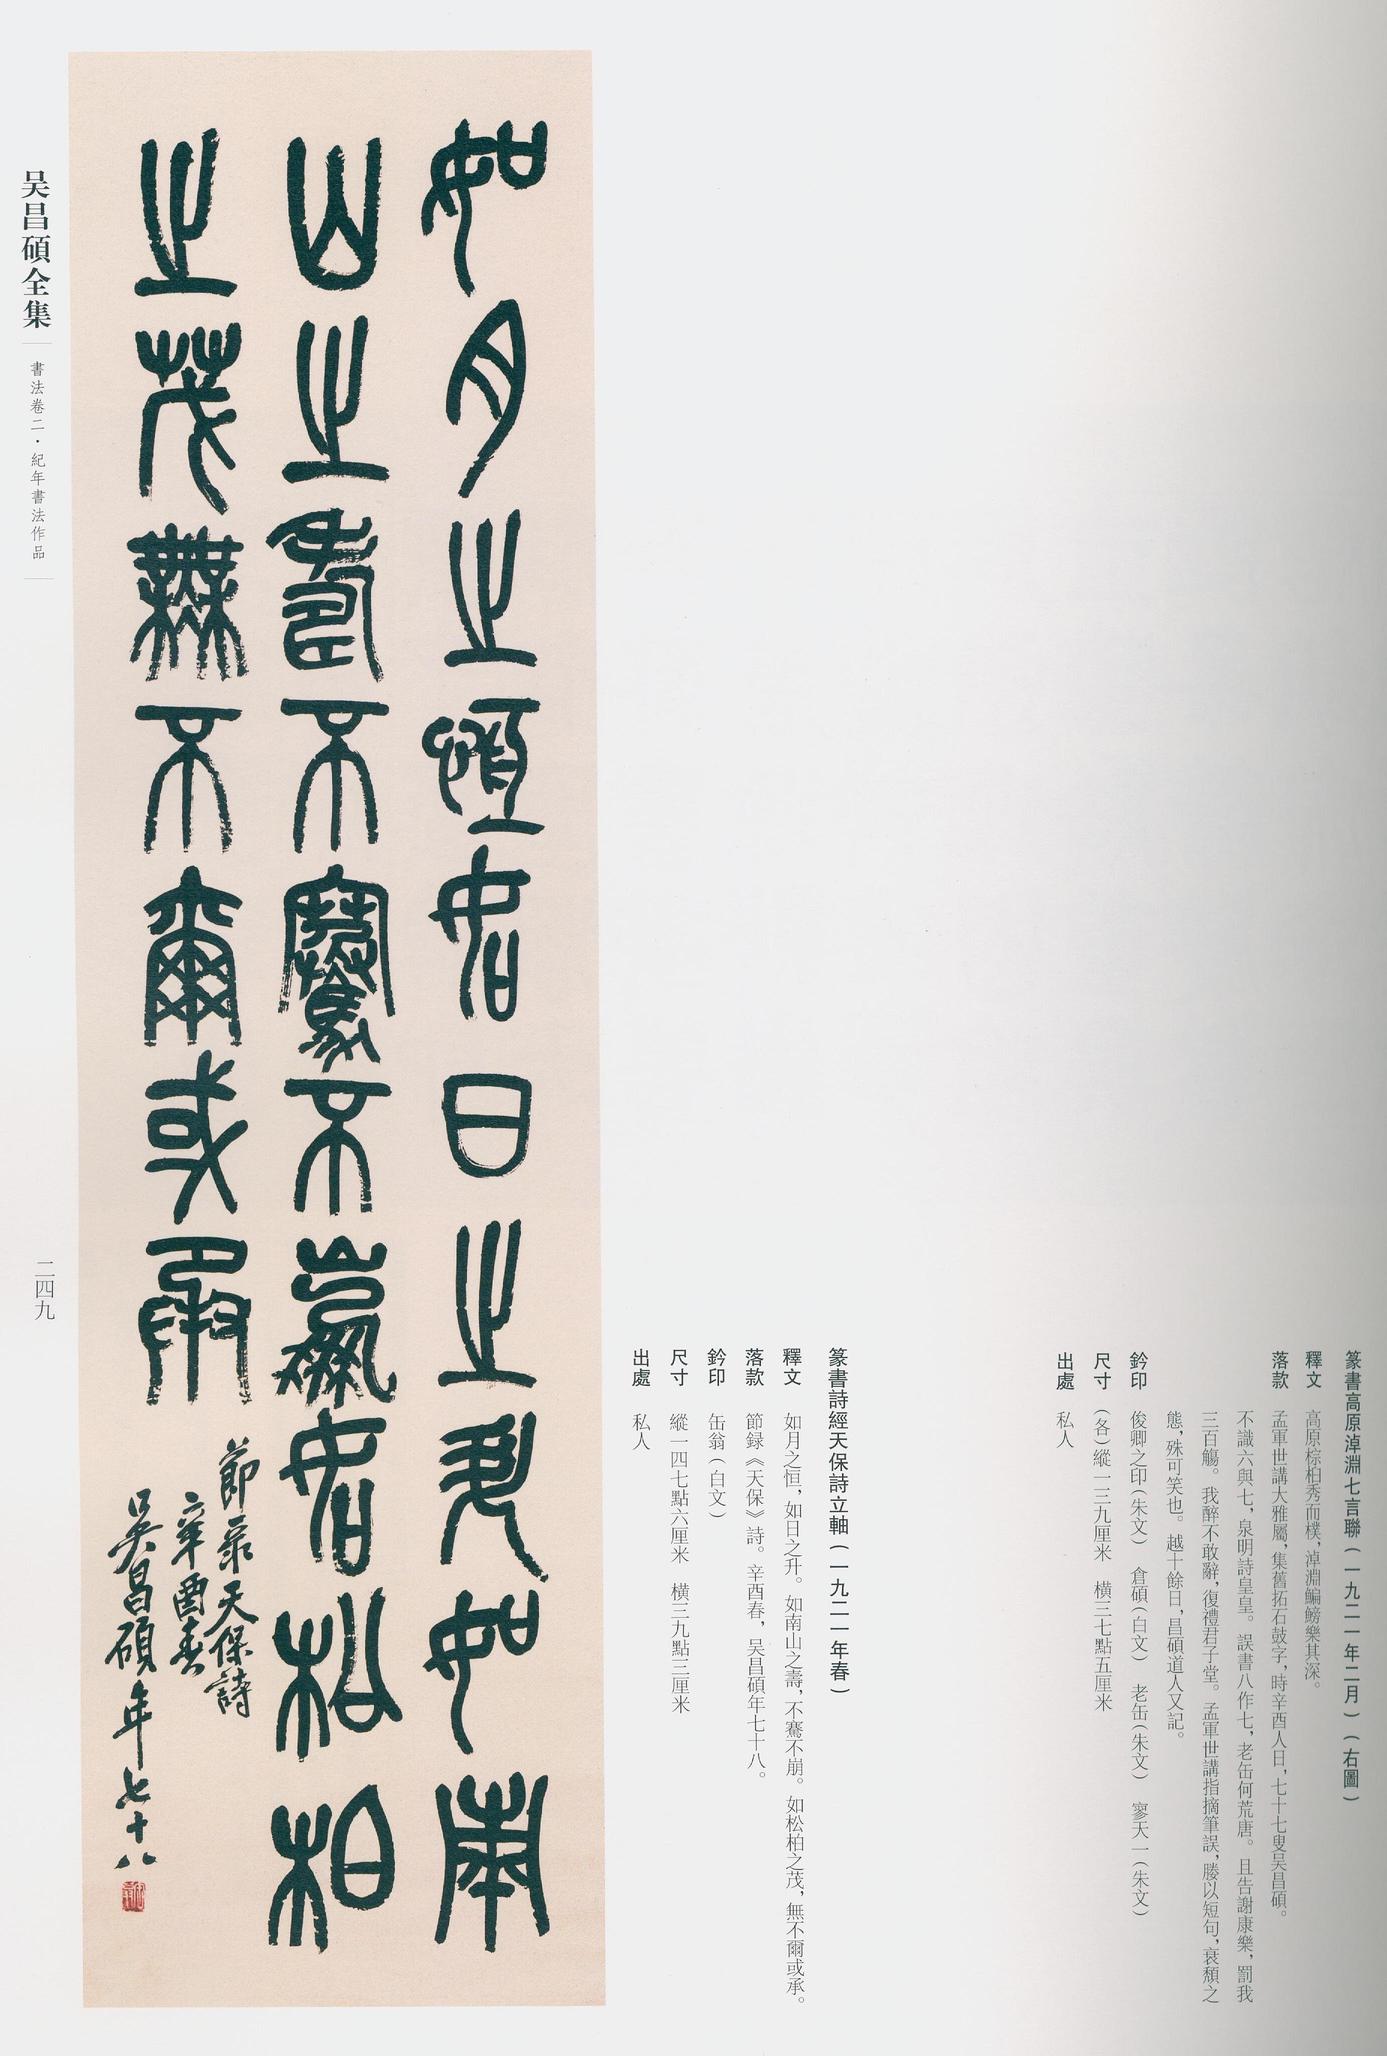 篆書高原淖淵七言聯(一九二一年二月)(右圖)
釋文 高原棕柏秀而樸,淖淵鯿鰟樂其深。
落款 孟軍世講大雅屬,集舊拓石鼓字,時辛酉人日,七十七叟吴昌碩。
不識六與七,泉明詩皇皇。誤書八作七,老缶何荒唐。且告謝康樂,罰我
三百觴。我醉不敢辭,復禮君子堂。孟軍世講指摘筆誤,賸以短句,衰頹之
態,殊可笑也。越十餘日,昌碩道人又記。
鈐印 俊卿之印(朱文) 倉碩(白文) 老缶(朱文) 寥天一(朱文)
尺寸 (各)縱一三九厘米 橫三七點五厘米
出處 私人
篆書詩經天保詩立軸(一九二一年春)
釋文 如月之恒,如日之升。如南山之壽,不騫不崩。如松柏之茂,無不爾或承。
落款 節録《天保》詩。辛酉春,吴昌碩年七十八。
鈐印 缶翁(白文)
尺寸 縱一四七點六厘米 橫三九點三厘米
出處 私人
如月之恒如日之升如南
山之壽不騫不崩如松柏
之茂無不爾或承
節录天保詩
辛酉春
吳昌碩年七十八
吴昌碩全集
書法卷二·紀年書法作品
二四九